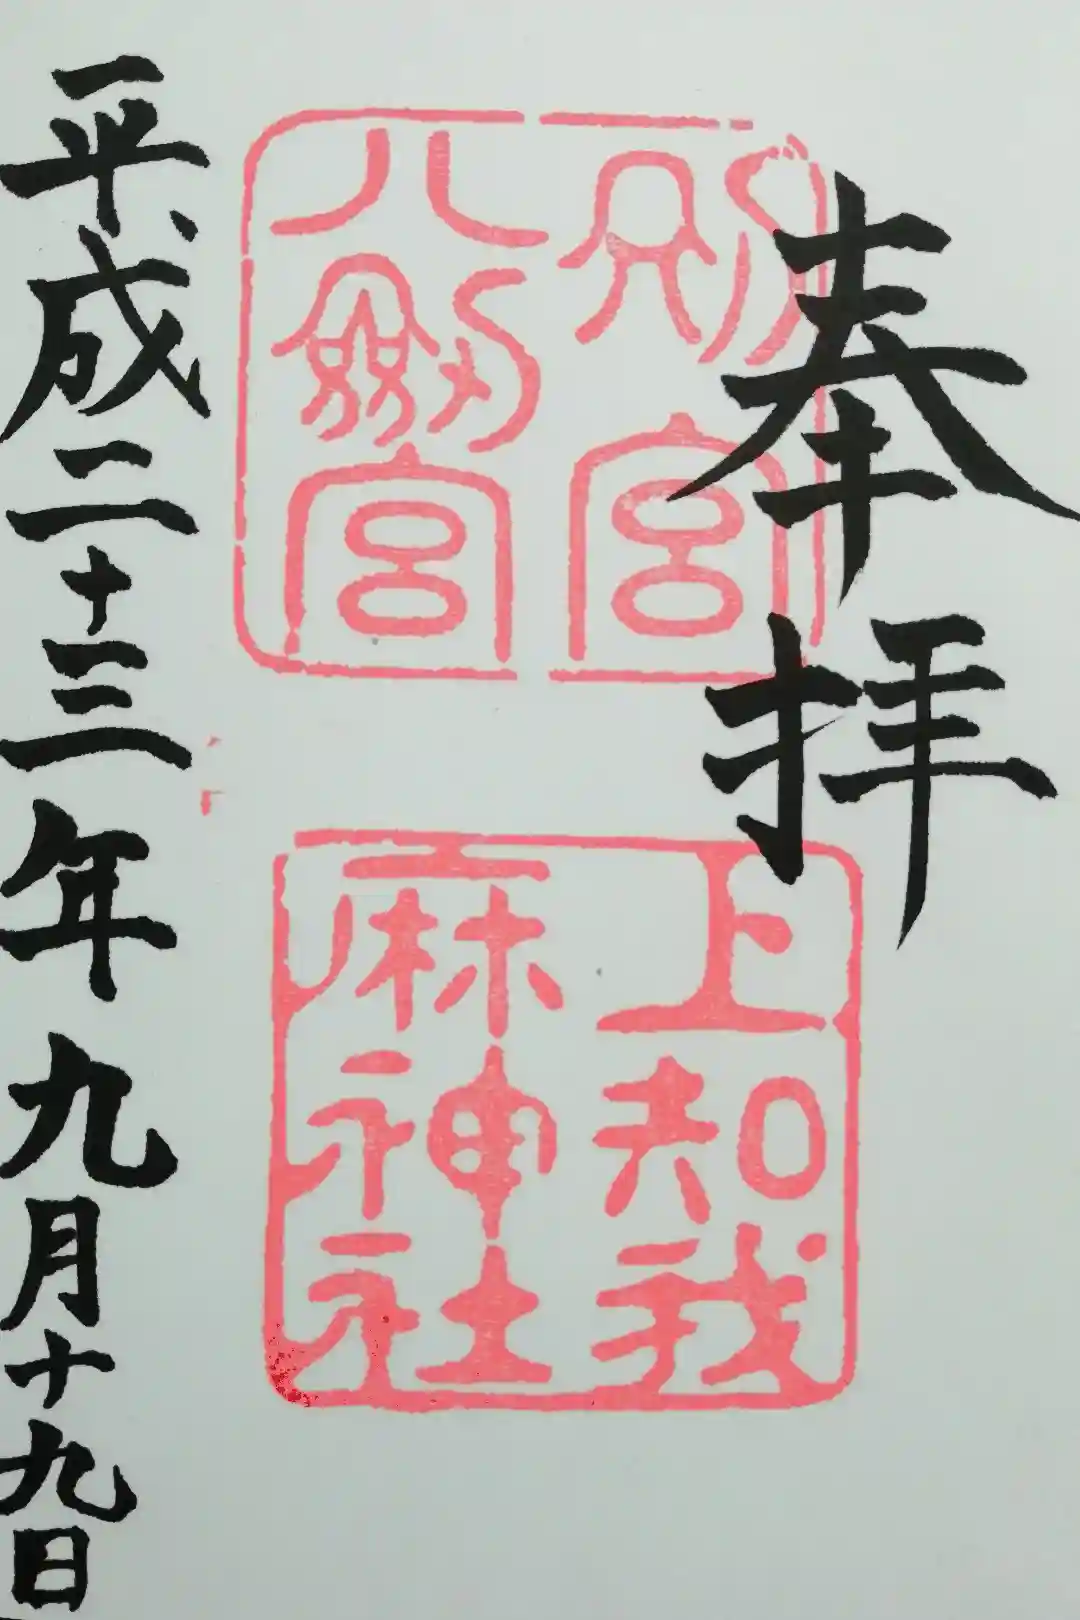 奉拝
別宮
八劔宮
上知我
麻神社
平成二十三年九月十九日